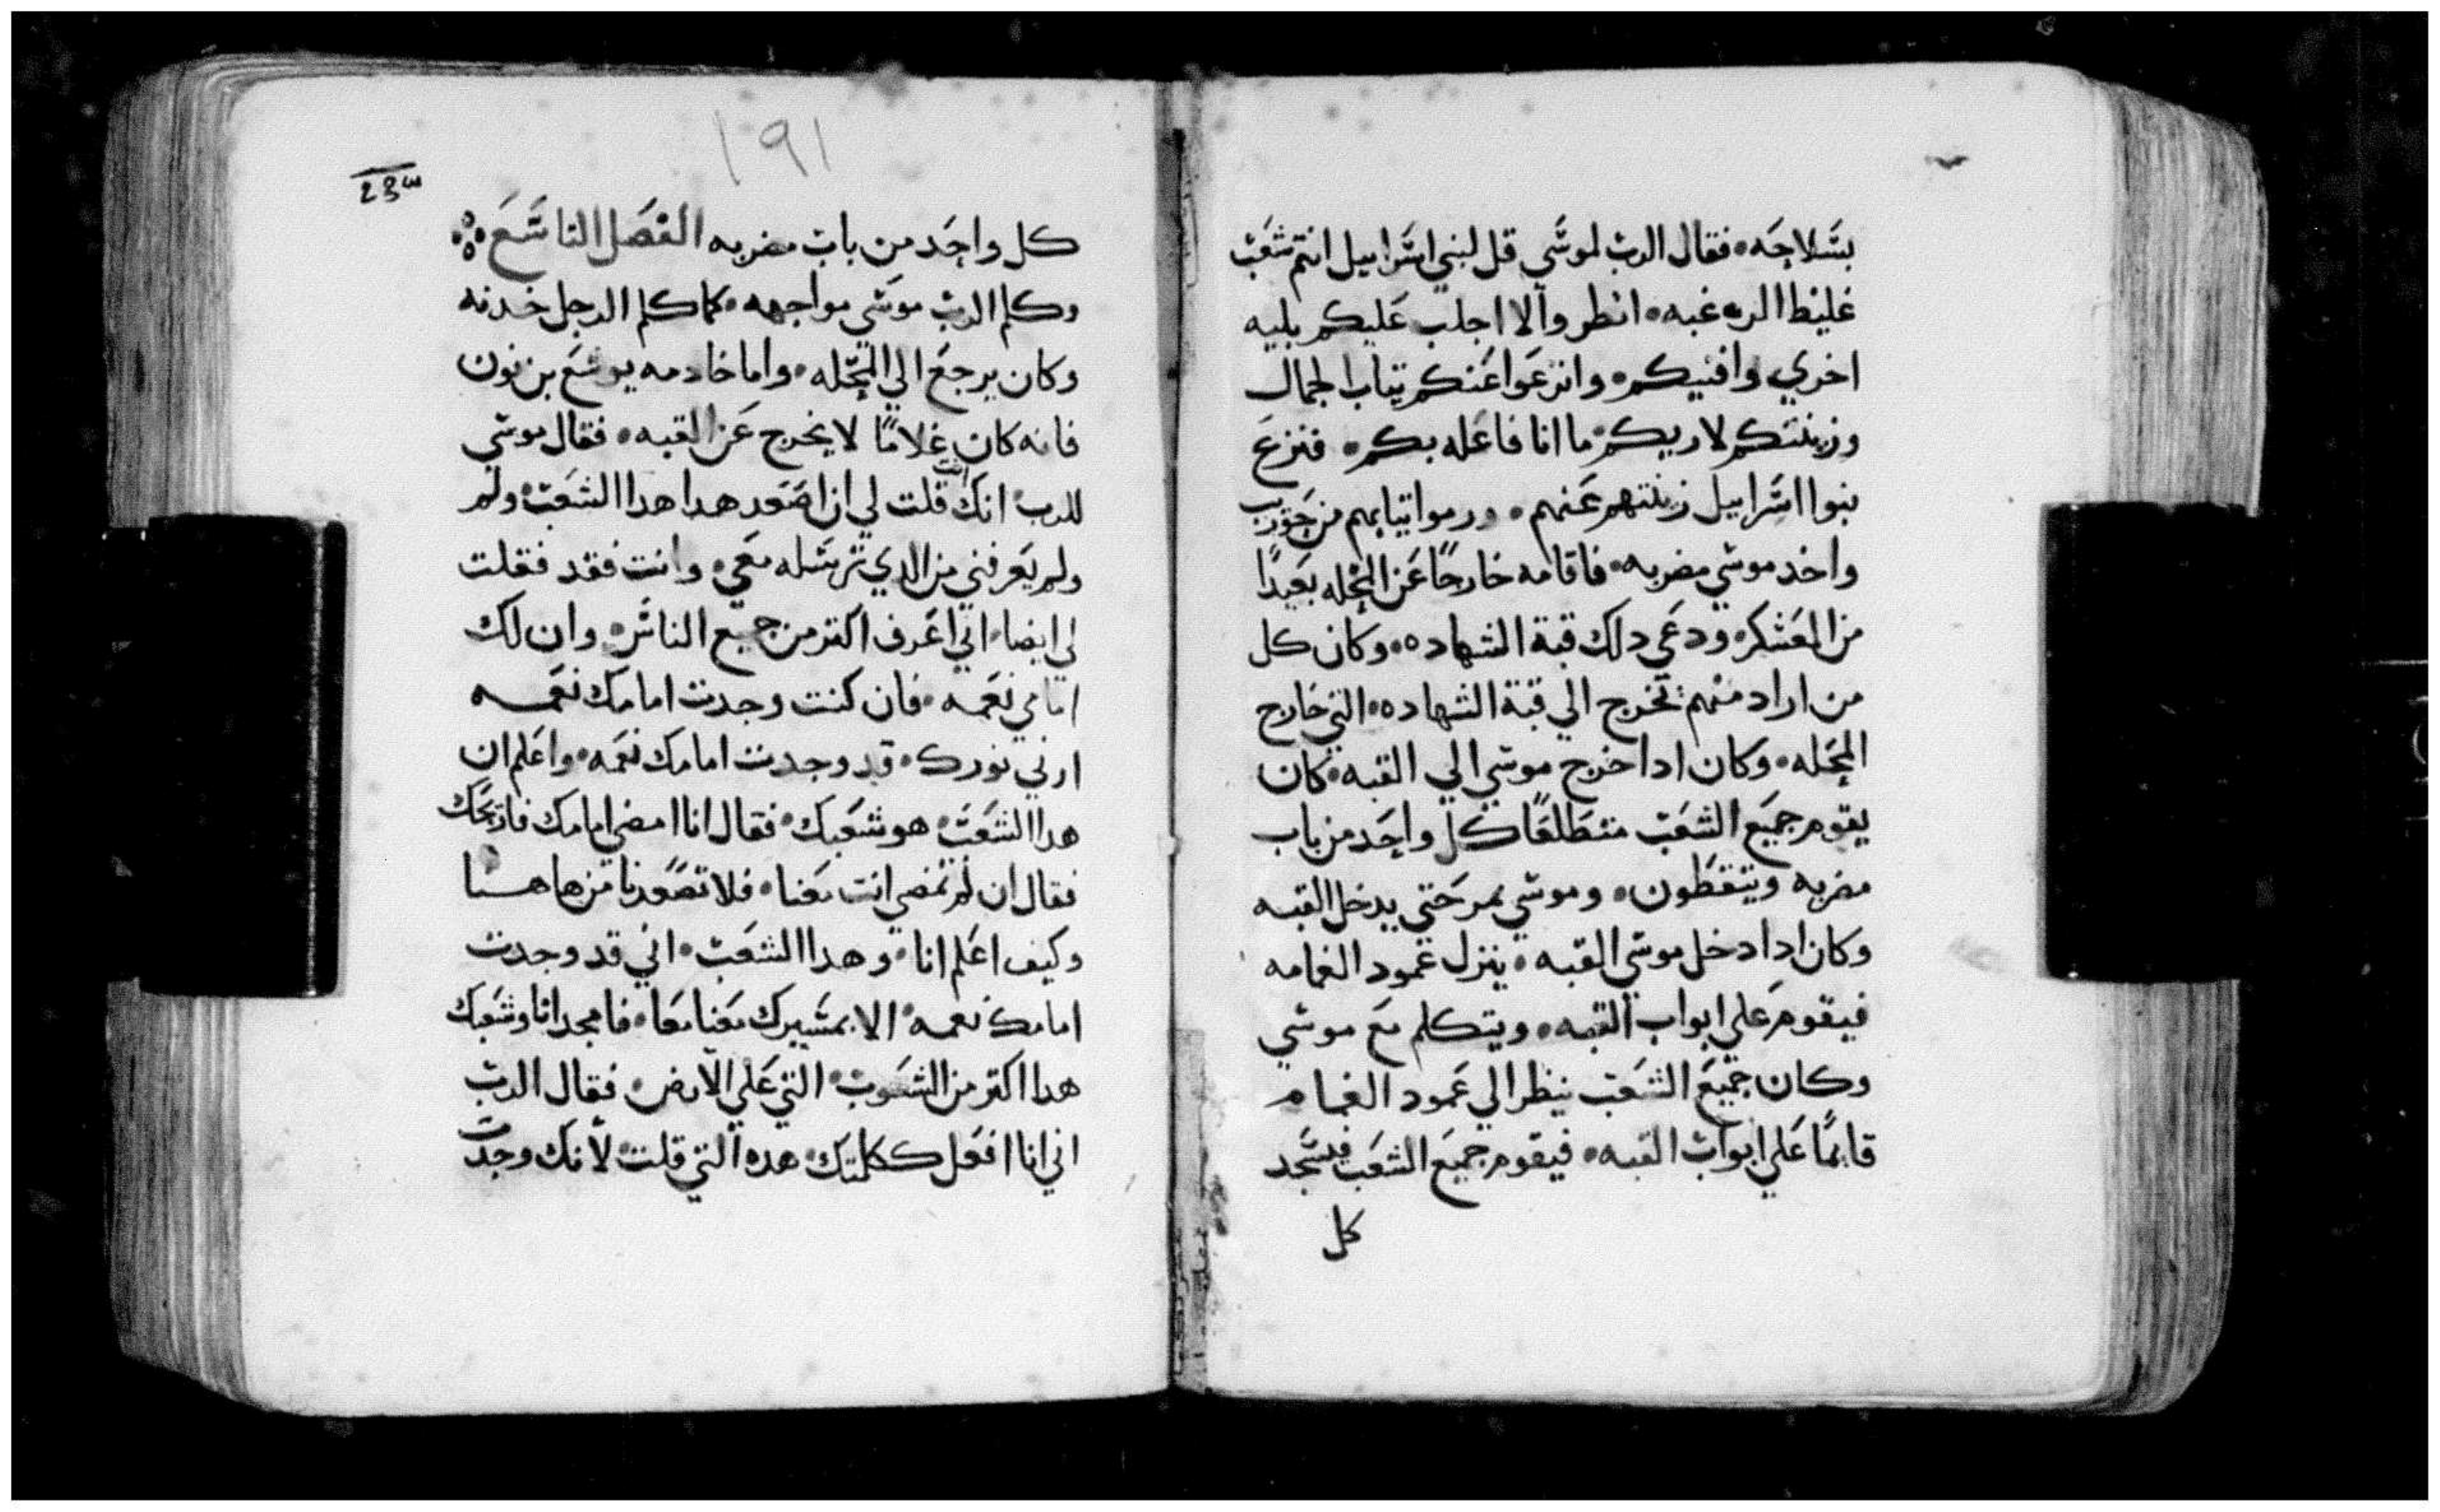 بسلاحه. فقال الرب لموسي قل لبني اسرابيل انتم شعب
غليظ الرقبه. انظروا لا اجلب عليكم بليه
اخري وافنيكم. وانزعوا عنكم تياب الجمال
وزينتكم لاريكم ما انا فاعله بكم. فنزع
بنوا اسرابيل زينتهم عنهم. ورموا تيابهم من حوريب
واخد موسي مضربه. فاقامه خارجًا عن المحله بعيدًا
من المعسكر. ودعي دلك قبة الشهاده. وكان كل
من اراد منهم تخرج الي قبة الشهاده. التي خارج
المحله. وكان ادا خرج موسي الي القبه. كان
يقوم جميع الشعب متطلعًا كل واحد من باب
مضربه ويتقظون. وموسي يمر حتي يدخل القبه
وكان ادا دخل موسي القبه. ينزل عمود الغمامه
فيقوم علي ابواب القبه. ويتكلم مع موسي
وكان جميع الشعب ينظر الي عمود الغمام
قايمًا علي ابواب القبه. فيقوم جميع الشعب فيسجد
كل
١٩١
23
كل واحد من باب مضربه الفصل التاسع
وكلم الرب موسي مواجهه. كما كلم الرجل خدنه
وكان يرجع الي المحله. واما خادمه يوشع بن نون
فانه كان غلامًا لا يخرج عن القبه. فقال موسي
للرب انك انت قلت لي ان اصعد هدا هدا الشعب ولم
ولم يعرفني من الدي ترسله معي. وانت فقد فقلت
لي ايضا. اني اعرف اكتر من جميع الناس. وان لك
امامي نعمه. فان كنت وجدت امامك نعمه
ارني نورك. قد وجدت امامك نعمه. واعلم ان
هدا الشعب هو شعبك. فقال انا امضي امامك فاريحك
فقال ان لم تمضي انت معنا. فلا تصعدنا من هاهنا
وكيف اعلم انا. وهدا الشعب. اني قد وجدت
امامك نعمه الا بمسيرك معنا معا. فامجد انا وشعبك
هدا اكتر من الشعوب التي علي الارض. فقال الرب
اني انا افعل ككلمتك هده التي قلت لانك وجدت